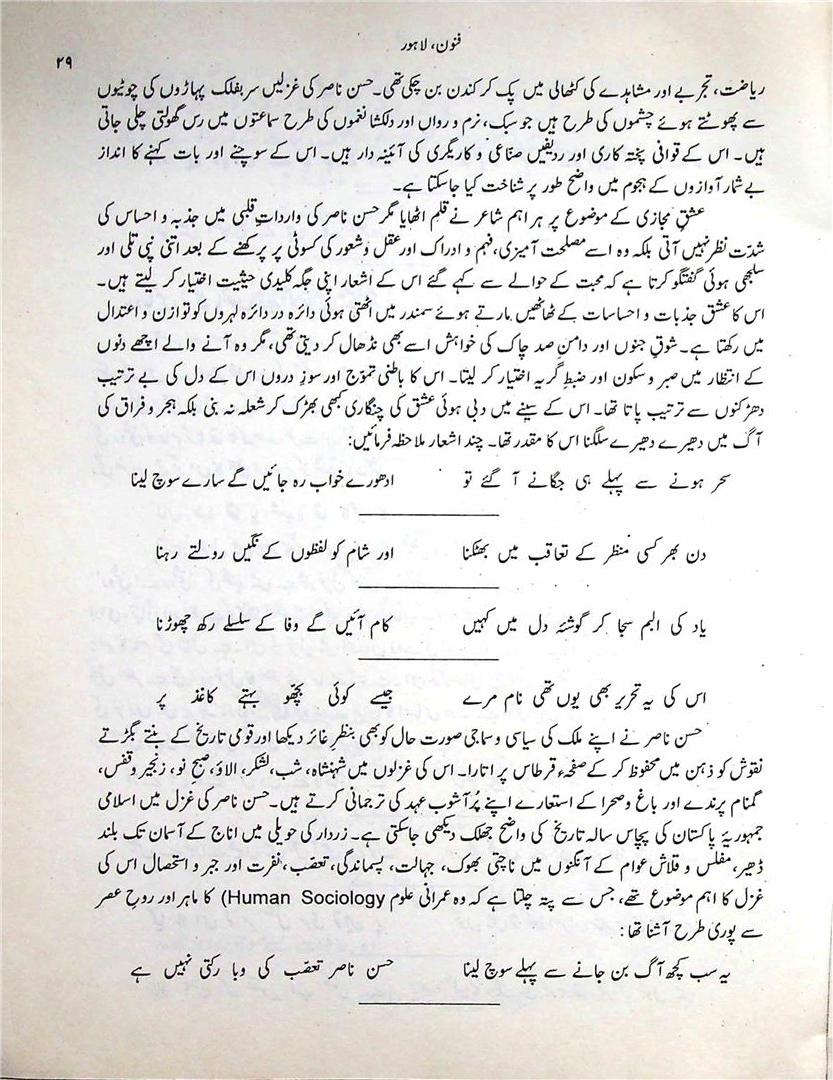 فنون، لاہور
۲۹
ریاضت، تجربے اور مشاہدے کی کٹھالی میں پک کر کندن بن چکی تھی۔ حسن ناصر کی غزلیں سر بفلک پہاڑوں کی چوٹیوں
سے پھوٹتے ہوئے چشموں کی طرح ہیں جو سبک، نرم و رواں اور دلکشا نغموں کی طرح سماعتوں میں رس گھولتی چلی جاتی
ہیں۔ اس کے قوافی پختہ کاری اور ردیفیں صنّاعی و کاریگری کی آئینہ دار ہیں۔ اس کے سوچنے اور بات کہنے کا انداز
بے شمار آوازوں کے ہجوم میں واضح طور پر شناخت کیا جاسکتا ہے۔
عشقِ مجازی کے موضوع پر ہر اہم شاعر نے قلم اٹھایا مگر حسن ناصر کی وارداتِ قلبی میں جذبہ و احساس کی
شدّت نظر نہیں آتی بلکہ وہ اسے مصلحت آمیزی، فہم و ادراک اور عقل و شعور کی کسوٹی پر پرکھنے کے بعد اتنی نپی تلی اور
سلجھی ہوئی گفتگو کرتا ہے کہ محبت کے حوالے سے کہے گئے اس کے اشعار اپنی جگہ کلیدی حیثیت اختیار کر لیتے ہیں۔
اس کا عشق جذبات و احساسات کے ٹھاٹھیں مارتے ہوئے سمندر میں اٹھتی ہوئی دائرہ در دائرہ لہروں کو توازن و اعتدال
میں رکھتا ہے۔ شوقِ جنوں اور دامنِ صد چاک کی خواہش اسے بھی نڈھال کر دیتی تھی، مگر وہ آنے والے اچھے دنوں
کے انتظار میں صبر و سکون اور ضبطِ گریہ اختیار کر لیتا۔ اس کا باطنی تموّج اور سوزِ دروں اس کے دل کی بے ترتیب
دھڑکنوں سے ترتیب پاتا تھا۔ اس کے سینے میں دبی ہوئی عشق کی چنگاری کبھی بھڑک کر شعلہ نہ بنی بلکہ ہجر و فراق کی
آگ میں دھیرے دھیرے سلگنا اس کا مقدر تھا۔ چند اشعار ملاحظہ فرمائیں:
سحر ہونے سے پہلے ہی جگانے آ گئے تو ادھورے خواب رہ جائیں گے سارے سوچ لینا
دن بھر کسی منظر کے تعاقب میں بھٹکنا اور شام کو لفظوں کے نگیں رولتے رہنا
یاد کی البم سجا کر گوشۂ دل میں کہیں کام آئیں گے وفا کے سلسلے رکھ چھوڑنا
اس کی یہ تحریر بھی یوں تھی نام مرے جیسے کوئی بچھّو بہتے کاغذ پر
حسن ناصر نے اپنے ملک کی سیاسی و سماجی صورت حال کو بھی بنظرِ غائر دیکھا اور قومی تاریخ کے بنتے بگڑتے
نقوش کو ذہن میں محفوظ کر کے صفحۂ قرطاس پر اتارا۔ اس کی غزلوں میں شہنشاہ، شب، لشکر، الاؤ، صبحِ نو، زنجیر و قفس،
گمنام پرندے اور باغ و صحرا کے استعارے اپنے پُر آشوب عہد کی ترجمانی کرتے ہیں۔ حسن ناصر کی غزل میں اسلامی
جمہوریۂ پاکستان کی پچاس سالہ تاریخ کی واضح جھلک دیکھی جاسکتی ہے۔ زردار کی حویلی میں اناج کے آسمان تک بلند
ڈھیر، مفلس و قلاش عوام کے آنگنوں میں ناچتی بھوک، جہالت، پسماندگی، تعصّب، نفرت اور جبر و استحصال اس کی
غزل کا اہم موضوع تھے، جس سے پتہ چلتا ہے کہ وہ عمرانی علوم Human Sociology) کا ماہر اور روحِ عصر
سے پوری طرح آشنا تھا:
یہ سب کچھ آگ بن جانے سے پہلے سوچ لینا حسن ناصر تعصّب کی وبا رکتی نہیں ہے